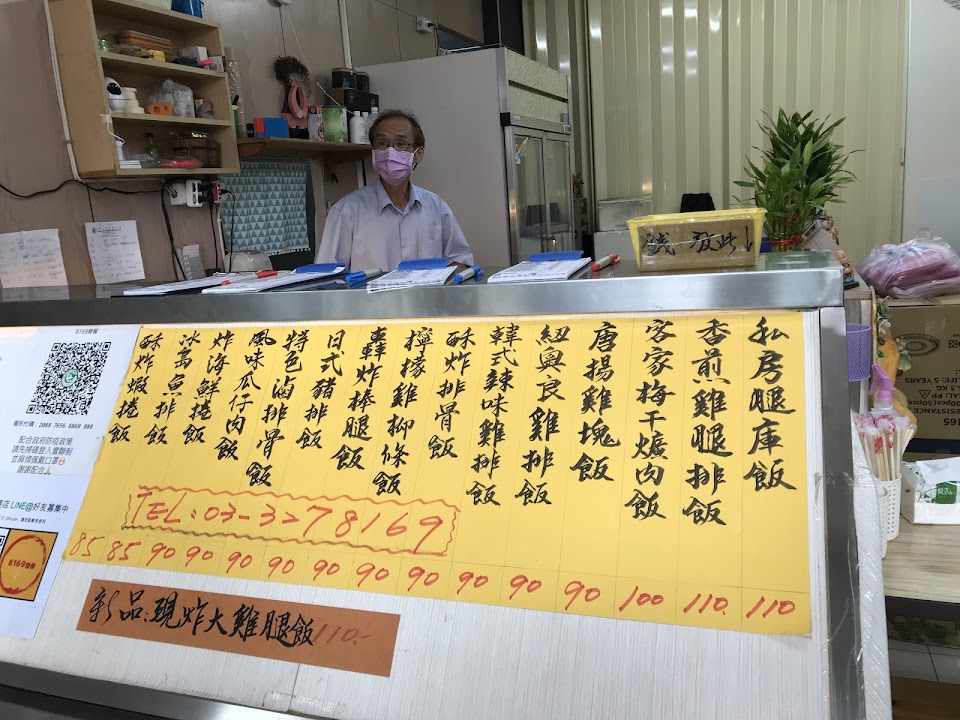 私房腿庫飯 110
香煎雞腿排飯 110
客家梅干爌肉飯 100
唐揚雞塊飯 90
紐奧良雞排飯 90
韓式辣味雞排 90
酥炸排骨飯 90
檸檬雞柳條飯 90
轟炸棒腿飯 90
日式豬排飯 90
特色滷排骨飯 90
風味瓜仔肉飯 90
炸海鮮捲飯 90
冰島魚排飯 85
酥炸蝦捲飯 85
TEL:03-3278169
新品:現炸大雞腿飯110.-
錢放此↓
8169簡餐
場所代碼:2088 7656 8869 888
配合政府防疫政策
請先掃碼登入實聯制
並麻煩佩戴口罩
謝謝配合
店 LINE@好友募集中